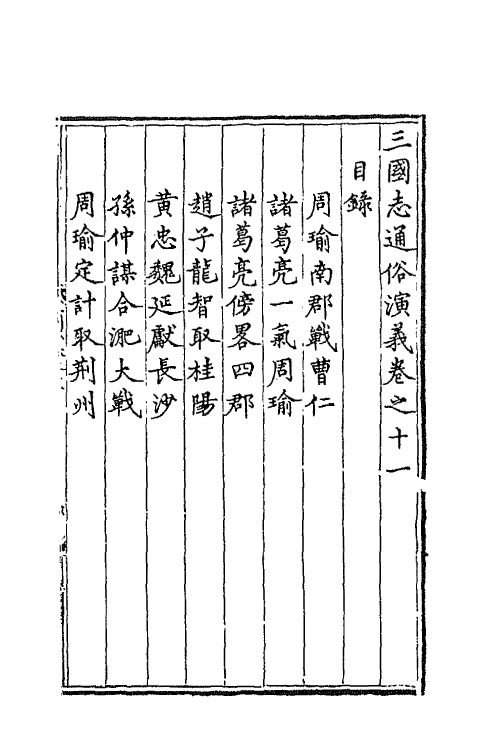 三國志通俗演義卷之十一
目錄
周瑜南郡戰曹仁
諸葛亮一氣周瑜
諸葛亮傍畧四郡
趙子龍智取桂陽
黃忠魏延獻長沙
孫仲謀合淝大戰
周瑜定計取荆州